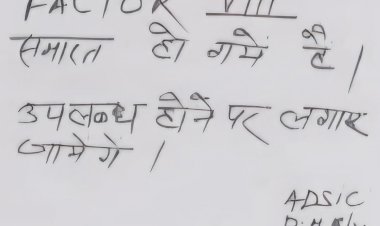 FACTOR VIII
समाप्त हो गये है।
उपलब्ध होने पर लगाए
जायेगे।
ADSIC